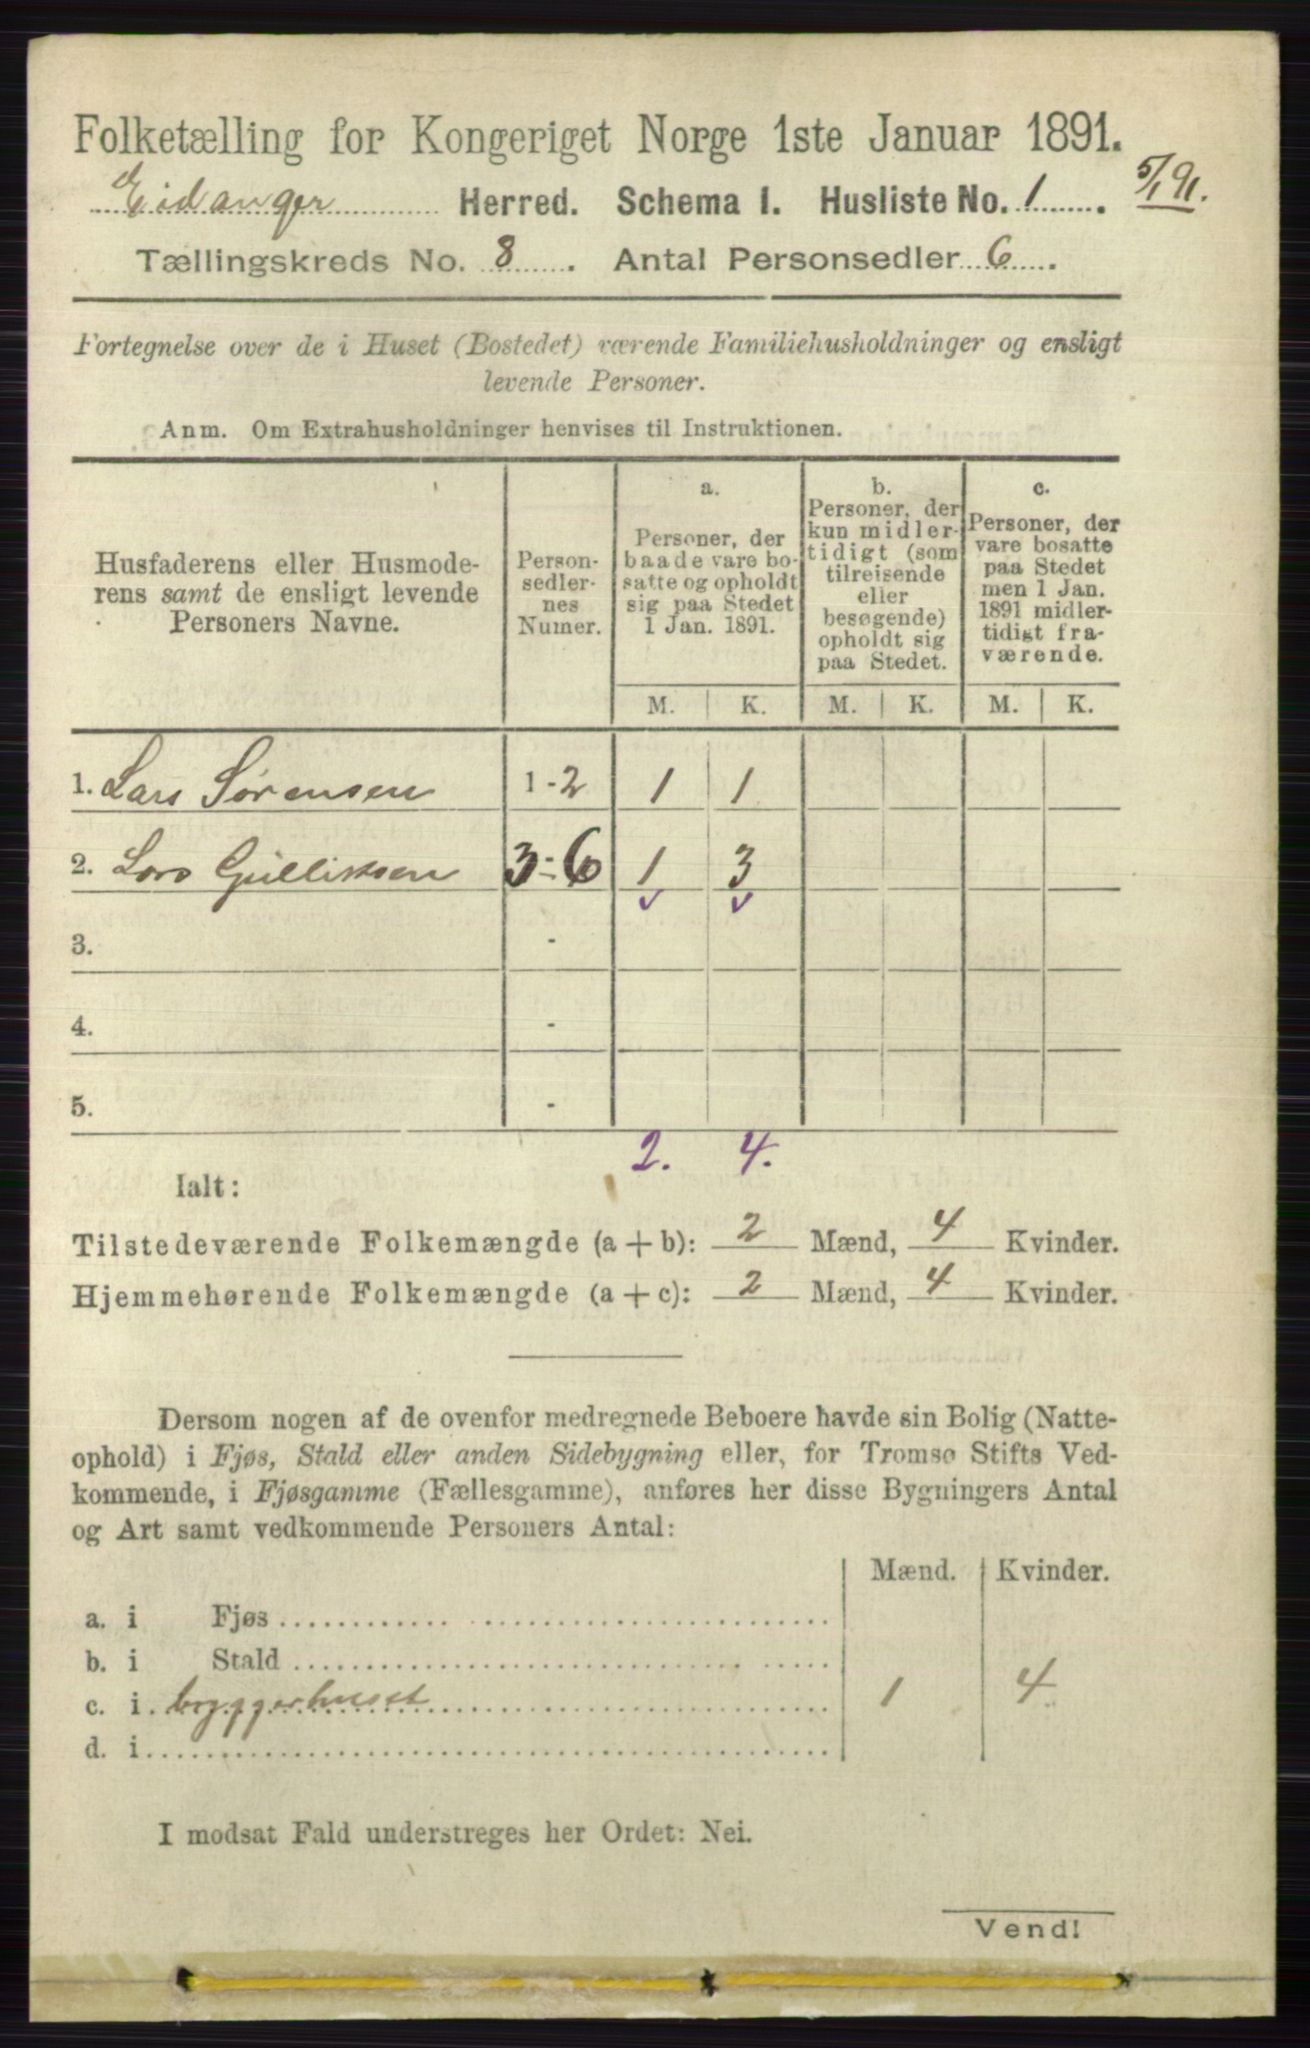 Folketælling for Kongeriget Norge 1ste Januar 1891.
5/1 91.
Eidanger Herred. Schema I. Husliste No. 1.
Tællingskreds No. 8. Antal Personsedler 6.
Fortegnelse over de i Huset (Bostedet) værende Familiehusholdninger og ensligt
levende Personer.
Anm. Om Extrahusholdninger henvises til Instruktionen.
Husfaderens eller Husmode-
rens samt de ensligt levende
Personers Navne.
Person-
sedler-
nes
Numer.
a.
Personer, der
baade vare bo-
satte og opholdt
sig paa Stedet
1 Jan. 1891.
b.
Personer, der
kun midler-
tidigt (som
tilreisende
eller
besøgende)
opholdt sig
paa Stedet.
c.
Personer, der
vare bosatte
paa Stedet
men 1 Jan.
1891 midler-
tidigt fra-
værende.
M. K. M. K. M. K.
1. Lars Sørensen 1-2 1 1
2. Lars Gulliksen 3-6 1 3
3. -
4. -
5. -
2. 4.
Ialt:
Tilstedeværende Folkemængde (a + b): 2 Mænd, 4 Kvinder.
Hjemmehørende Folkemængde (a + c): 2 Mænd, 4 Kvinder.
Dersom nogen af de ovenfor medregnede Beboere havde sin Bolig (Natte-
ophold) i Fjøs, Stald eller anden Sidebygning eller, for Tromsø Stifts Ved-
kommende, i Fjøsgamme (Fællesgamme), anføres her disse Bygningers Antal
og Art samt vedkommende Personers Antal:
Mænd. Kvinder.
a. i Fjøs
b. i Stald
c. i bryggerhuset 1 4
d. i
I modsat Fald understreges her Ordet: Nei.
Vend!